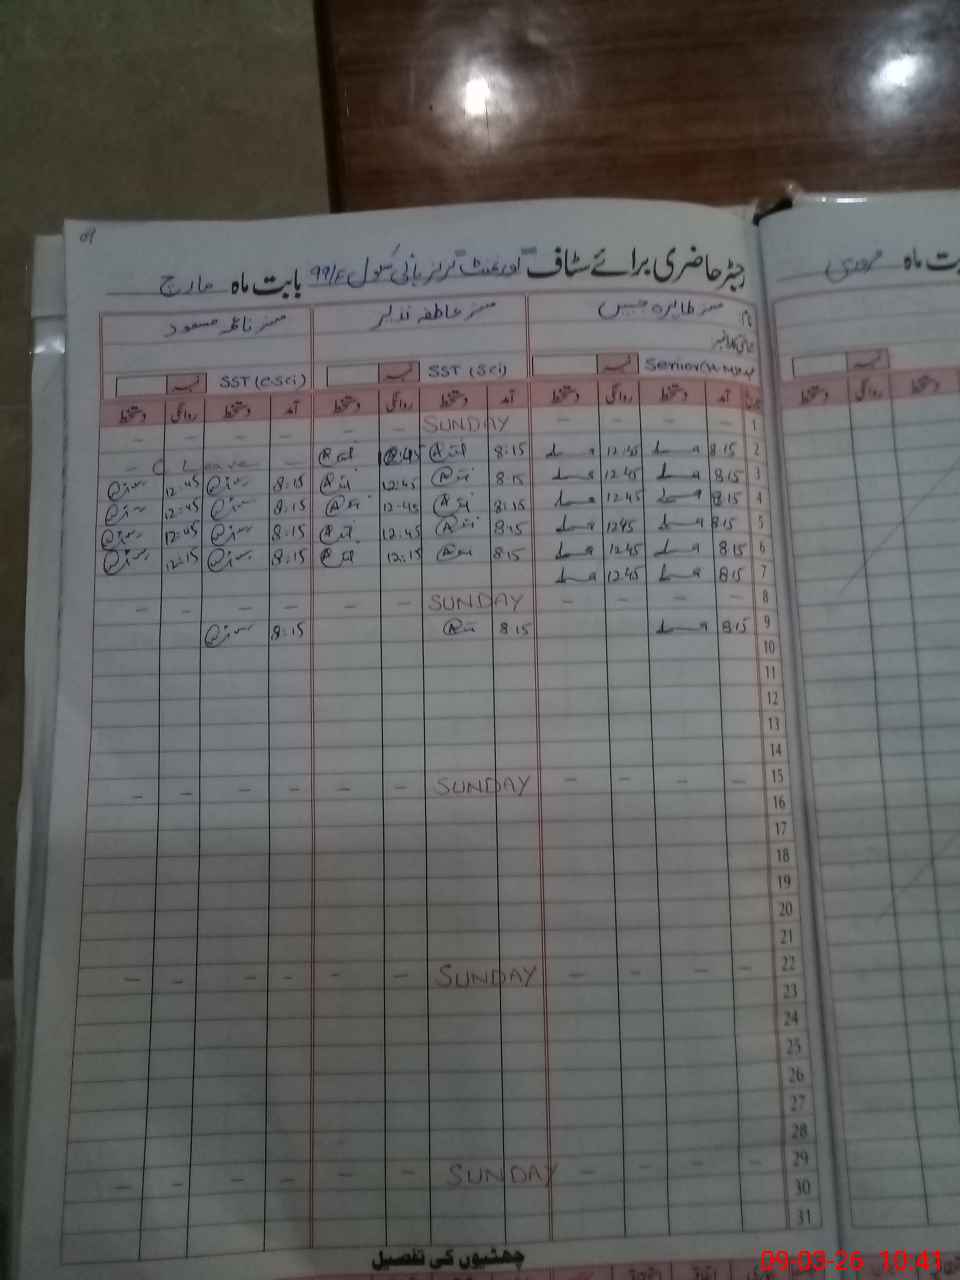 09
رجسٹر حاضری برائے سٹاف گورنمنٹ گرلز ہائی سکول 99/E بابت ماہ مارچ
نام مسز طاہرہ مسز عاطفہ نذیر مسز ناظمہ مسعود
Senior SST (Sci) SST (C.Sci)
تاریخ آمد دستخط روانگی دستخط آمد دستخط روانگی دستخط آمد دستخط روانگی دستخط
1 - - - - SUNDAY - - - - - -
2 8:15 12:45 8:15 12:45 - C Leave -
3 8:15 12:45 8:15 12:45 8:15 12:45
4 8:15 12:45 8:15 12:45 8:15 12:45
5 8:15 12:45 8:15 12:45 8:15 12:45
6 8:15 12:45 8:15 12:15 8:15 12:15
7 8:15 12:45
8 - - - - SUNDAY - - - - - -
9 8:15 8:15 8:15
10
11
12
13
14
15 - - - - SUNDAY - - - - - -
16
17
18
19
20
21
22 - - - - SUNDAY - - - - - -
23
24
25
26
27
28
29 - - - - SUNDAY - - - - - -
30
31
چھٹیوں کی تفصیل
بابت ماہ فروری
دستخط روانگی دستخط
09-03-26 10:41